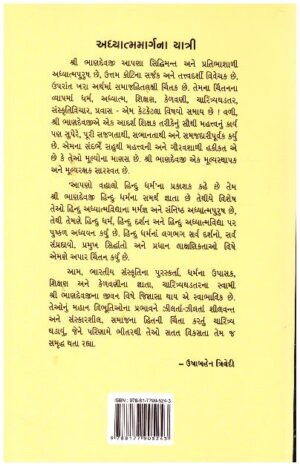 અધ્યાત્મમાર્ગના યાત્રી
શ્રી ભાણદેવજી આપણા સિદ્ધિમંત અને પ્રતિભાશાળી
અધ્યાત્મપુરુષ છે, ઉત્તમ કોટિના સર્જક અને તત્ત્વદર્શી વિવેચક છે.
ઉપરાંત ખરા અર્થમાં સમાજહિતચિંતક છે. તેમના ચિંતનના
વ્યાપમાં ધર્મ, અધ્યાત્મ, શિક્ષણ, કેળવણી, ચારિત્ર્યઘડતર,
સંસ્કૃતિવિચાર, પ્રવાસ - એમ કેટકેટલા વિષયો સમાય છે ! વળી,
શ્રી ભાણદેવજીએ એક આદર્શ શિક્ષક તરીકેનું સૌથી મહત્ત્વનું કાર્ય
પણ સુપેરે, પૂરી સજગતાથી, સભાનતાથી અને સમજદારીપૂર્વક કર્યું
છે. એમના સંદર્ભે સહુથી મહત્ત્વની અને ગૌરવશાળી હકીકત એ
છે કે તેઓ મૂલ્યોના માણસ છે. શ્રી ભાણદેવજી એક મૂલ્યસ્થાપક
અને મૂલ્યરક્ષક સારસ્વત છે.
'આપણો વહાલો હિન્દુ ધર્મ'ના પ્રકાશક કહે છે તેમ
શ્રી ભાણદેવજી હિન્દુ ધર્મના સમર્થ જ્ઞાતા છે તેથીયે વિશેષ
તેઓ હિન્દુ અધ્યાત્મવિદ્યાના મર્મજ્ઞ અને સંનિષ્ઠ અધ્યાત્મપુરુષ છે,
તેથી તેમણે હિન્દુ ધર્મ, હિન્દુ દર્શન અને હિન્દુ અધ્યાત્મવિદ્યા પર
પુષ્કળ અધ્યયન કર્યું છે. હિન્દુ ધર્મનાં લગભગ સર્વ દર્શનો, સર્વ
સંપ્રદાયો, પ્રમુખ સિદ્ધાંતો અને પ્રધાન લાક્ષણિકતાઓ વિષે
એમણે અપાર ચિંતન કર્યું છે.
આમ, ભારતીય સંસ્કૃતિના પુરસ્કર્તા, ધર્મના ઉપાસક,
શિક્ષણ અને કેળવણીના જ્ઞાતા, ચારિત્ર્યઘડતરના સ્વામી
શ્રી ભાણદેવજીના જીવન વિષે જિજ્ઞાસા થાય એ સ્વાભાવિક છે.
તેઓનું મહાન વિભૂતિઓના પ્રભાવને ઝીલતાં-ઝીલતાં શીલવન્ત
અને સંસ્કારશીલ, સમાજના હિતની ચિંતા કરતું ચારિત્ર્ય
ઘડાયું, જેને પરિણામે ભીતરથી તેઓ સતત વિકસતા તેમ જ
સમૃદ્ધ થતા રહ્યા.
- ઉષાબહેન ત્રિવેદી
ISBN : 978-81-7790-924-3
9788177909243